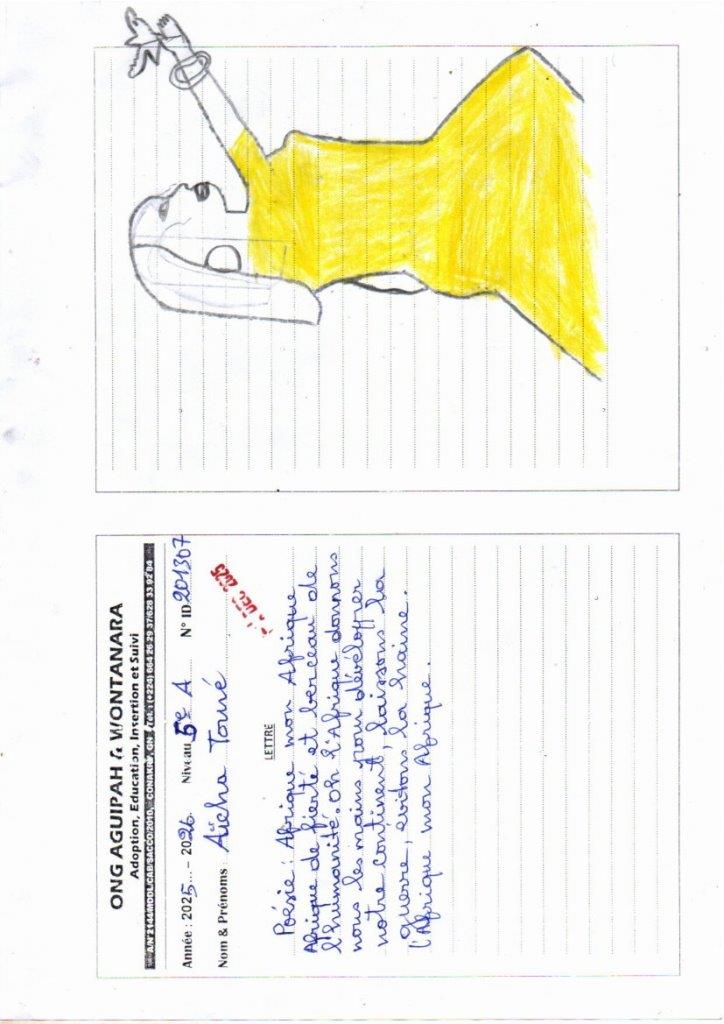 ONG AGUIPAH & WONTANARA
Adoption, Education, Insertion et Suivi
Année : 2025... - 2026. Niveau 5e A N° ID 201307
Nom & Prénoms : Aïcha Touré
DEC 2025
LETTRE
Poésie : Afrique mon Afrique
Afrique de fierté et berceau de
l'humanité. Oh l'Afrique donnons
nous les mains pour développer
notre continent, laissons la
guerre, évitons la haine.
l'Afrique mon Afrique.